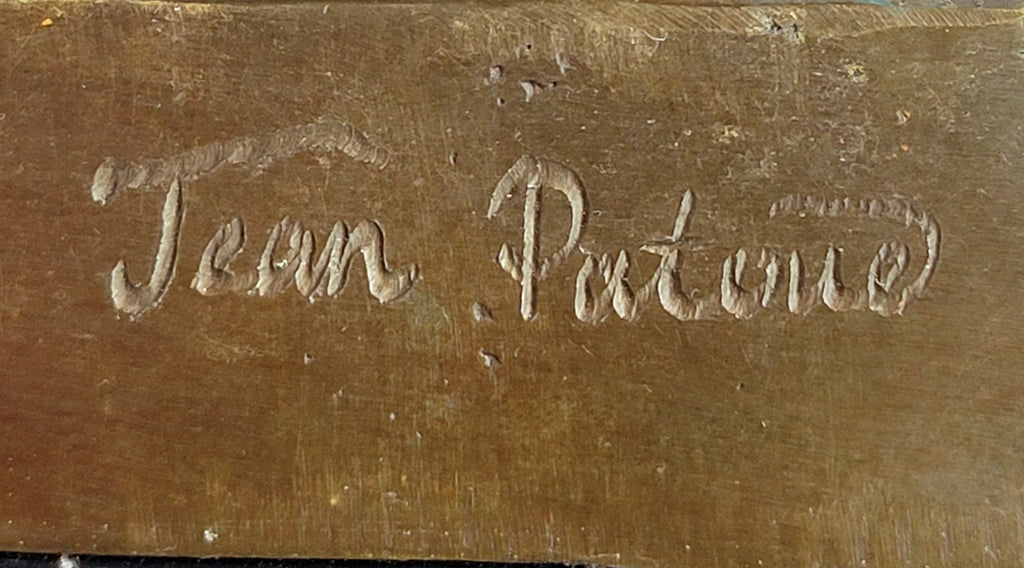 Jean Patou